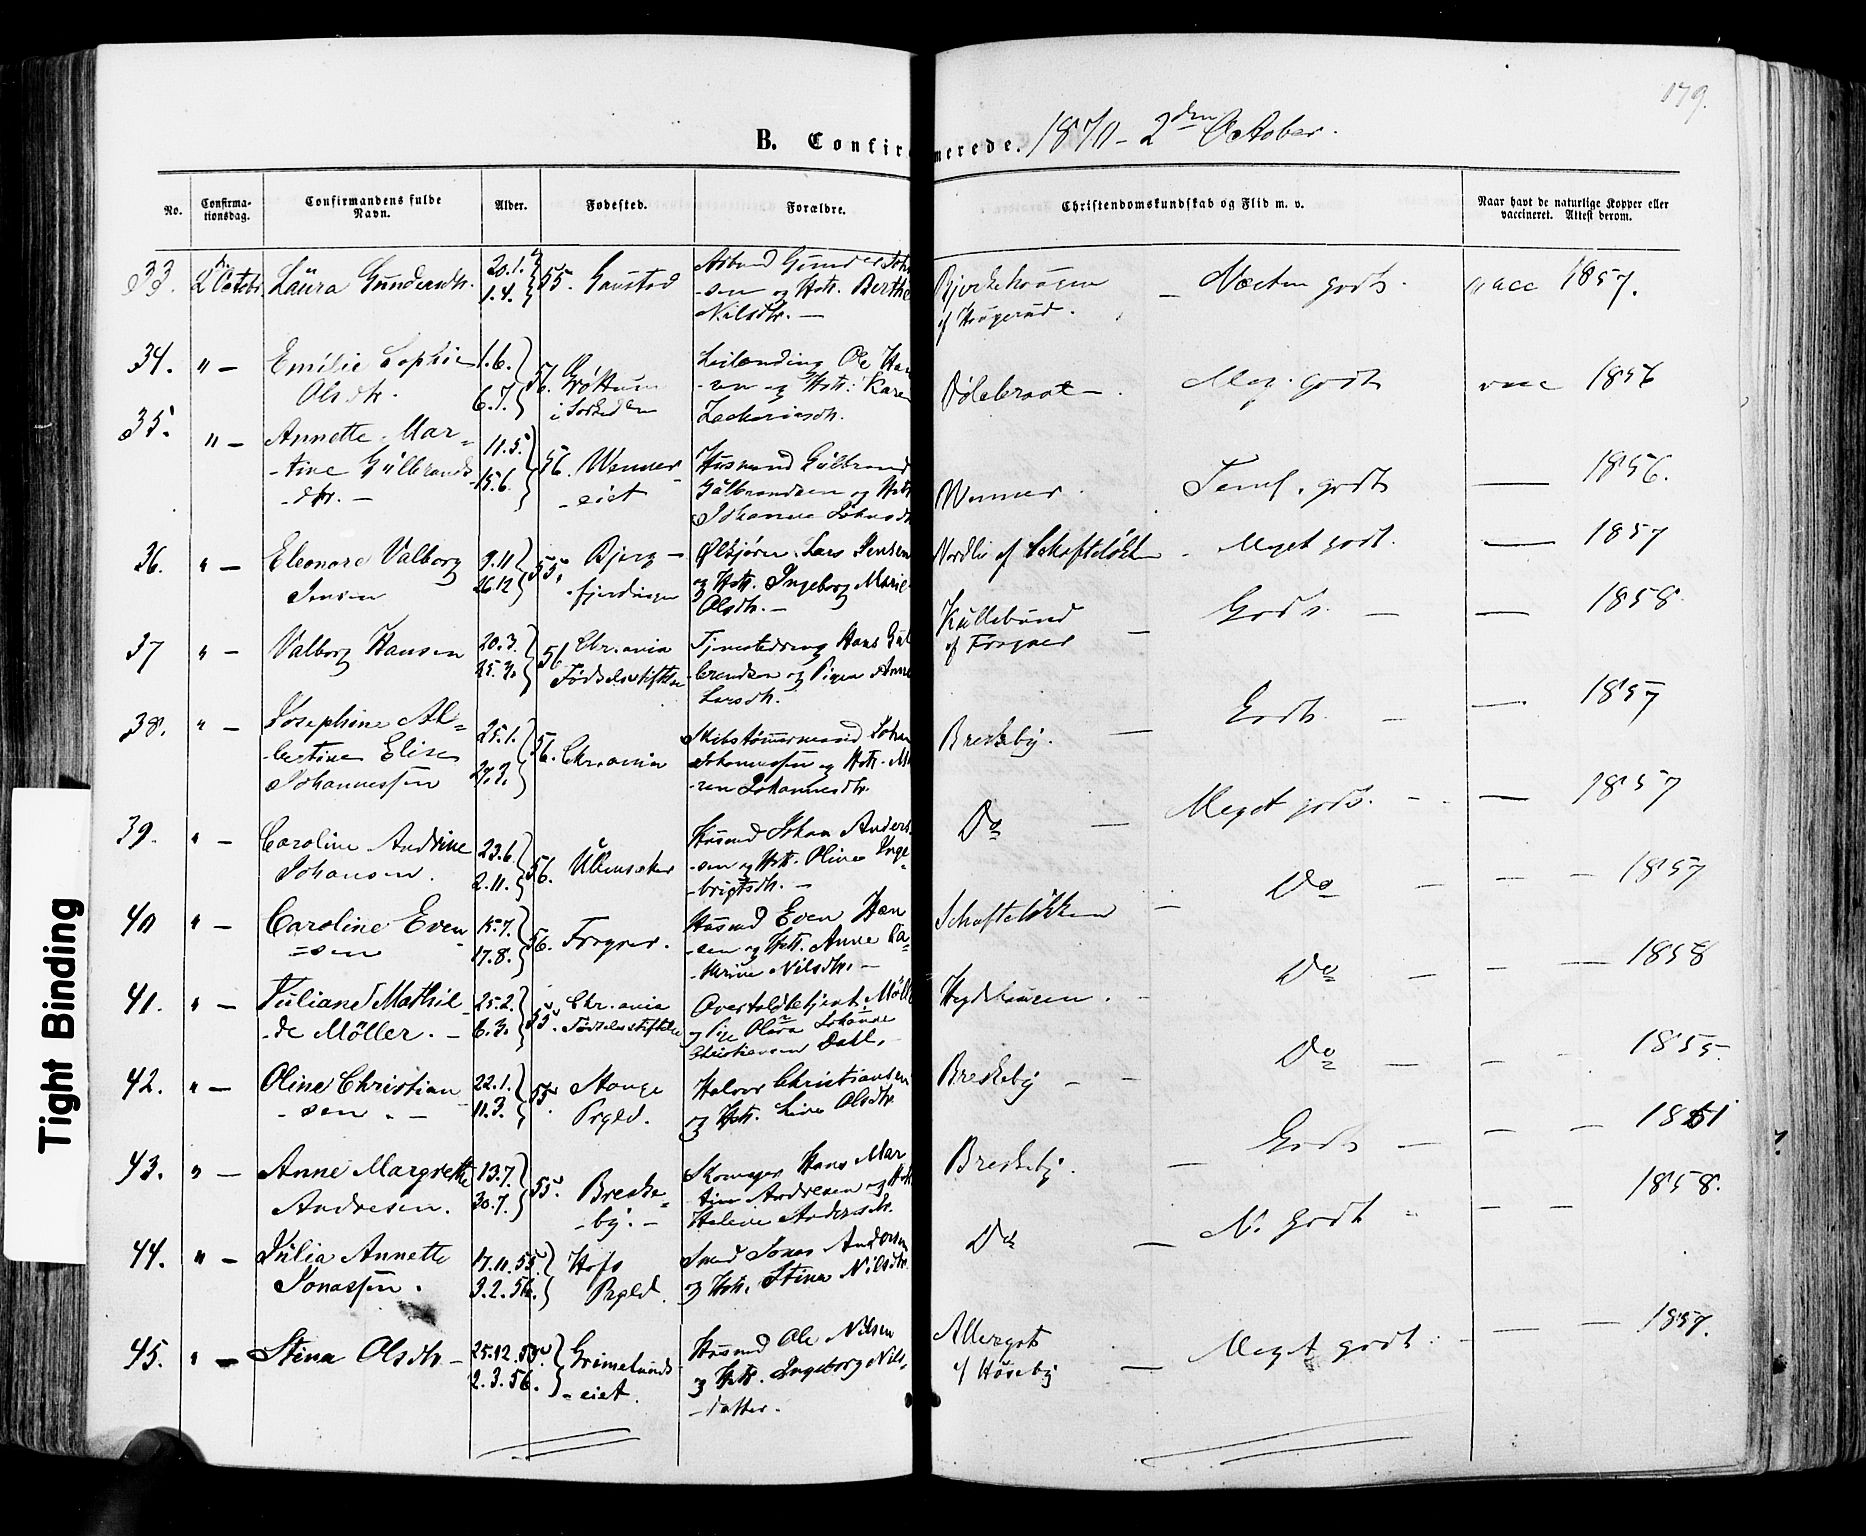 179.
B. Confirmerede. 1870 - 2den October.
No.
Confirma-
tionsdag.
Confirmandens fulde
Navn.
Alder.
Fødested.
Forældre.
Christendomskundskab og Flid m. v.
Naar havt de naturlige Kopper eller
vaccineret. Attest derom.
33. 2 Octobr. Laura Gundersdtr. 20.1. 1.4. 55. Gaustad
sen og Hstr. Berthe
Nilsdtr. —
af Haugerud. — Næsten godt. vacc 1857.
34. " — Emilie Sophie
Olsdtr. 1.6. 6.7. 56.
i Sørkedalen
Leilænding Ole Han
-sen og Hstr. Karen
Zachariasdtr.
Meg. godt vacc 1856
35. " — Annette Mar-
-tine Gulbrands-
-dtr. — 11.5. 15.6. 56. Wenner-
-eiet
Husmand Gulbrand
Gulbrandsen og Hstr
Johanne Johnsdtr
Wenner Teml. godt — 1856.
36. " — Eleonore Valborg
Jensen 9.11 26.12 55. Bjerg-
-fjerdingen
Lars Jensen
og Hstr. Ingeborg Marie
Olsdtr. —
Nordli af Schafteløkken - Meget godt. — 1857
37 " — Valborg Hansen 20.3. 25.3. 56 Chr.ania
Fødselsstiftelse
Tjenestedreng Hans Gul
brandsen og Pigen Anne
Larsdtr.
Kullebund
af Frogner — Godt. — — 1858.
38. " — Josephine Al-
-bertine Elise
Johannessen 25.1. 27.2. 56. Chr.ania
Skibstømmermand Johan
Johannessen og Hstr. Ma
-ren Johannesdtr.
Breskeby. — Godt. — — 1857
39. " — Caroline Andrine
Johansen. 23.6. 2.11. 56. Ullensaker
Husmd Johan Anders-
-sen og Hstr. Oline Inge-
-brigtsdtr. —
Do — Meget godt. — — 1857
40 " — Caroline Even-
=sen 15.7. 17.8. 56. Frogner.
Husmd Even Han
-sen og Hstr. Anne Ca-
-thrine Nilsdtr. —
Schafteløkken — Do — — — 1857
41. " — Juliane Mathil-
-de Möller. — 25.2. 6.3. 55. Chr.ania
Fødselsstiftelse
Overtoldbetjent Möller
og Pige Olava Johanne
Christiansen Dahl.
Do — — — 1858
42. " — Oline Christian
-sen. — 22.1. 11.3. 55. Stange
Prgld.
Halvor Christiansen
og Hstr. Live Olsdtr.
Breskeby — — Do — — — 1855.
43. " — Anne Margrethe
Andresen. 13.7. 30.7. 55. Breske-
-by. —
Skomager Hans Mar
tin Andresen og Hstr
Helene Andersdtr.
Breskeby. — Godt — — — 1861
44. " — Julia Annette
Jonassen. 17.11.55. 3.2.56. Hofs
Prgld.
Smed Jonas Andersen
og Hstr. Stina Nilsdtr.
Do — N. Godt — — 1858.
45. " — Stina Olsdtr. — 25.12.55. 2.3.56. Grimelunds-
-eiet.
Husmd Ole Nilsen
og Hstr. Ingeborg Nils-
-datter.
af Huseby — Meget godt. — — — 1857.
Tight Binding